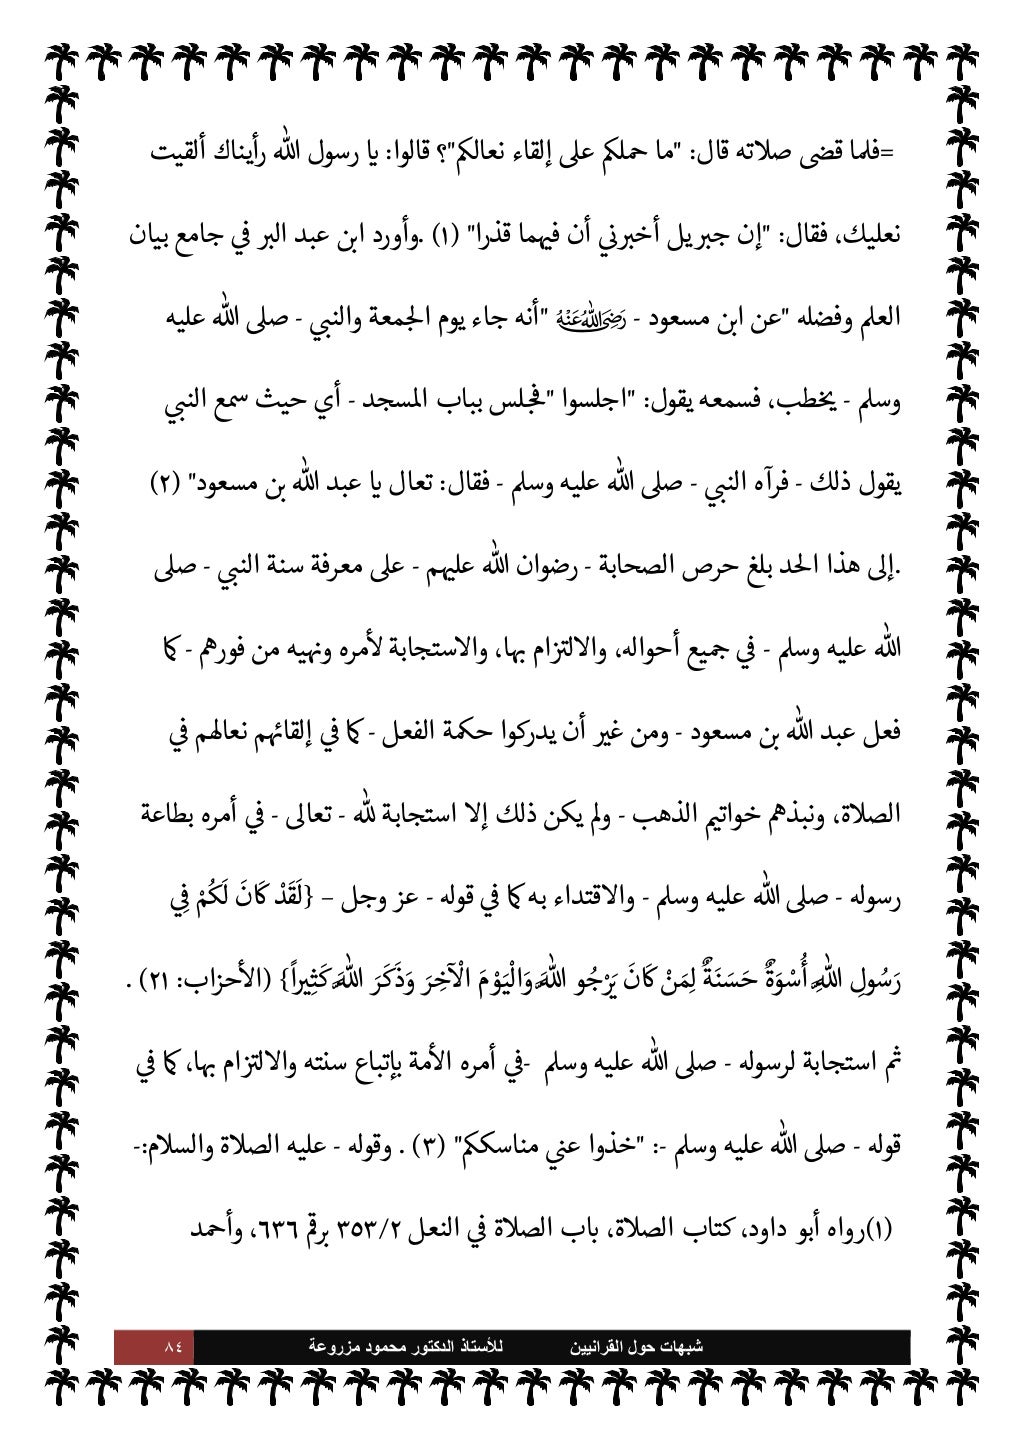 =فلما قضى صلاته قال: "ما حملكم على إلقاء نعالكم"؟ قالوا: يا رسول الله رأيناك ألقيت
نعليك، فقال: "إن جبريل أخبرني أن فيهما قذرا" (١) .وأورد ابن عبد البر في جامع بيان
العلم وفضله "عن ابن مسعود - رَضِيَ اللهُ عَنْهُ "أنه جاء يوم الجمعة والنبي - صلى الله عليه
وسلم - يخطب، فسمعه يقول: "اجلسوا "فجلس بباب المسجد - أي حيث سمع النبي
يقول ذلك - فرآه النبي - صلى الله عليه وسلم - فقال: تعال يا عبد الله بن مسعود" (٢)
.إلى هذا الحد بلغ حرص الصحابة - رضوان الله عليهم - على معرفة سنة النبي - صلى
الله عليه وسلم - في جميع أحواله، والالتزام بها، والاستجابة لأمره ونهيه من فورهم - كما
فعل عبد الله بن مسعود - ومن غير أن يدركوا حكمة الفعل - كما في إلقائهم نعالهم في
الصلاة، ونبذهم خواتيم الذهب - ولم يكن ذلك إلا استجابة لله - تعالى - في أمره بطاعة
رسوله - صلى الله عليه وسلم - والاقتداء به كما في قوله - عز وجل – {لَقَدْ كَانَ لَكُمْ فِي
رَسُولِ اللهِ أُسْوَةٌ حَسَنَةٌ لِمَنْ كَانَ يَرْجُو اللهَ وَالْيَوْمَ الْآخِرَ وَذَكَرَ اللهَ كَثِيراً} (الأحزاب: ٢١) .
ثم استجابة لرسوله - صلى الله عليه وسلم -في أمره الأمة بإتباع سنته والالتزام بها، كما في
قوله - صلى الله عليه وسلم -: "خذوا عني مناسككم" (٣) . وقوله - عليه الصلاة والسلام:-
(١)رواه أبو داود، كتاب الصلاة، باب الصلاة في النعل ٣٥٣/٢ برقم ٦٣٦، وأحمد
شبهات حول القرانيين للأستاذ الدكتور محمود مزروعة ٨٤